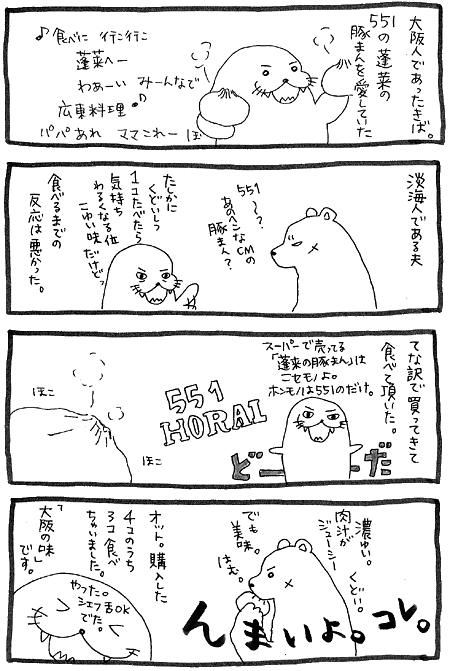 大阪人であったきば。
551の蓬莱の
豚まんを愛していた
♪食べに行こ行こ
蓬莱へー
わぁーいみーんなで
広東料理♪
パパあれママこれー
ほ
淡海人である夫
551〜?
あのヘンなCMの
豚まん?
たしかに
くどいしっ
1コたべたら
気持ち
わるくなる位
こゆい味だけどっ
食べるまでの
反応は悪かった。
てな訳で買ってきて
食べて頂いた。
スーパーで売ってる
「蓬莱の豚まん」は
ニセモノよ。
ホンモノは551のだけ。
551
HORAI
どーーだ
ほこ
ほこ
濃ゆい。
肉汁が
ジューシー
くどい。
でも
美味。
はむ。
んまいよ。コレ。
オット。購入した
4コのうち
3コ食べ
ちゃいました。
「大阪の味」
です。
やった。
シェフ舌OK
でた。